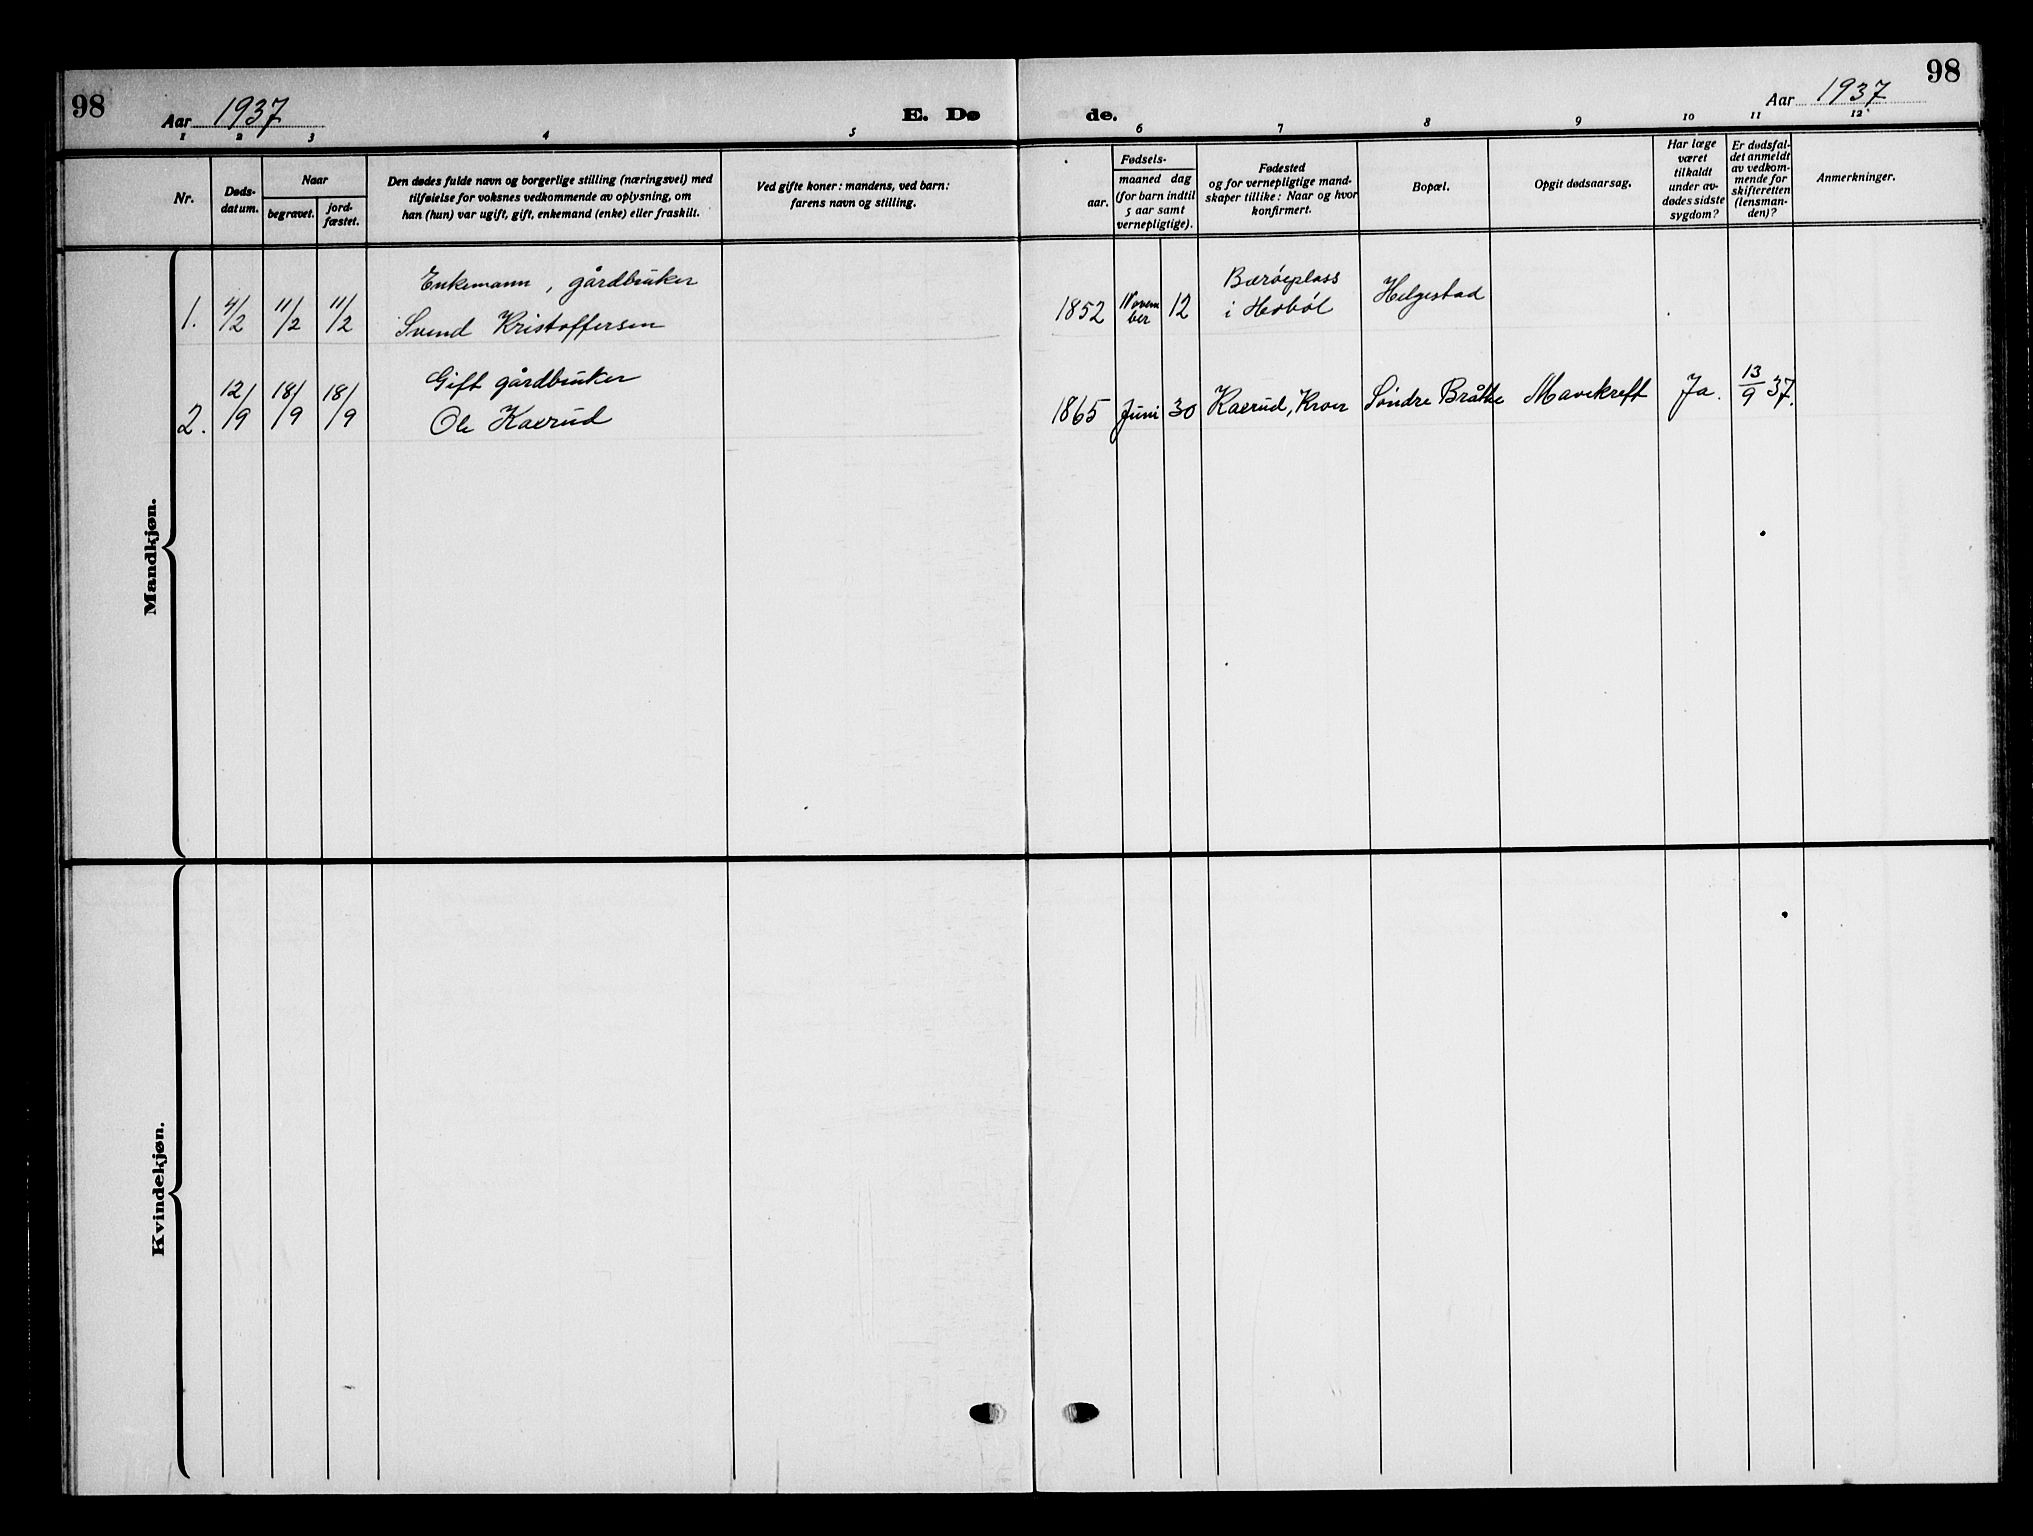 98
Aar 1937
E. Dø
de.
Aar 1937
98
1 2 3 4 5 6 7 8 9 10 11 12
Nr.
Døds-
datum.
Naar
begravet.
jord-
fæstet.
Den dødes fulde navn og borgerlige stilling (næringsvei) med
tilføielse for voksnes vedkommende av oplysning, om
han (hun) var ugift, gift, enkemand (enke) eller fraskilt.
Ved gifte koner: mandens, ved barn:
farens navn og stilling.
aar.
Fødsels-
maaned dag
(for barn indtil
5 aar samt
vernepligtige).
Fødested
og for vernepligtige mand-
skaper tillike: Naar og hvor
konfirmert.
Bopæl.
Opgit dødsaarsag.
Har læge
været
tilkaldt
under av-
dødes sidste
sygdom?
Er dødsfal-
det anmeldt
av vedkom-
mende for
skifteretten
(lensman-
den)?
Anmerkninger.
Mandkjøn.
1. 4/2 11/2 11/2
Enkemann, gårdbruker
Svend Kristoffersen
1852
Novem
ber
12
Bærøeplass
i Hobøl
Helgestad
2. 12/9 18/9 18/9
Gift gårdbruker
Ole Kaerud
1865 Juni 30 Kaerud, Kroer Søndre Bråtte Mavekreft Ja. 13/9 37.
Kvindekjøn.